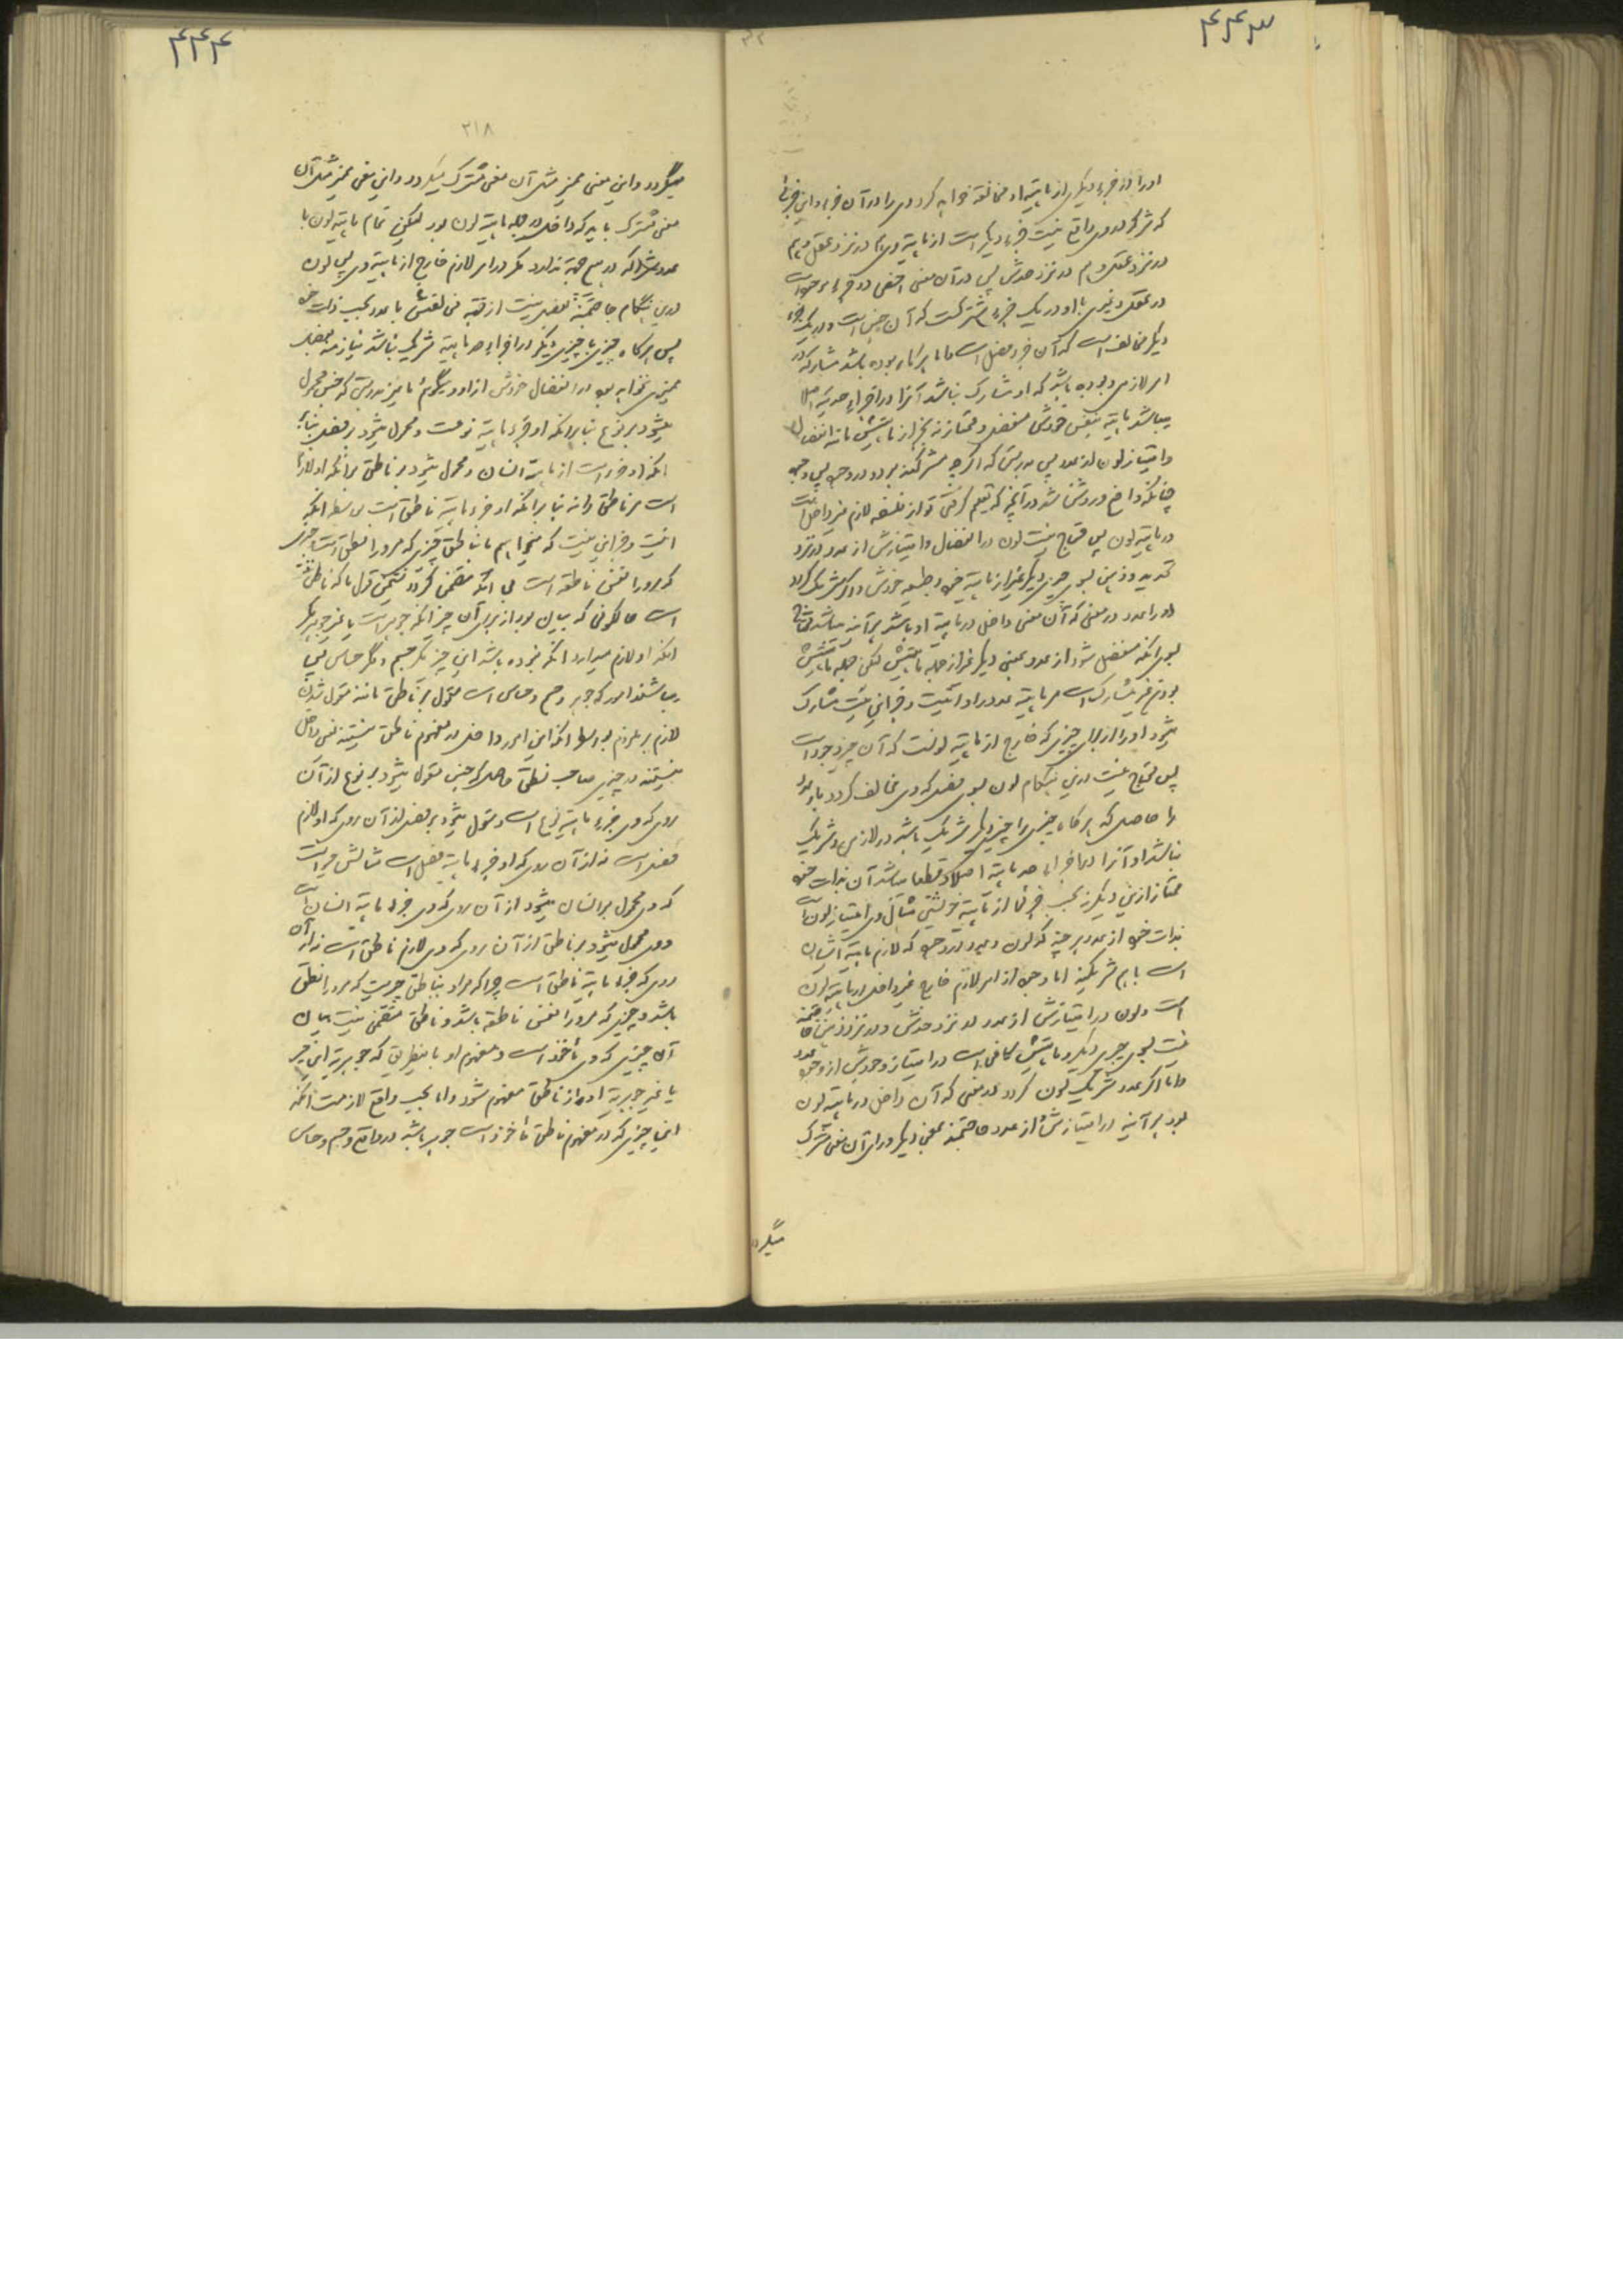 ۴۴۳
او را از جزء دیگر از ماهیة او مخالفة خواهد کرد وی را در آن جزء و این جزء
که شرکة در وی واقع نیست جزء دیگر است از ماهیة وی هم در نزد عقل و هم
در نزد عقل و هم در نزد حدش پس در آن معنی اخص دو جزء موجود است
در عقل و غیری با او در یک جزء شریکست که آن جنس است و در یک جزء
دیگر مخالف است که آن جزء فصل است و اما هرگاه بوده باشد مشارکة در
امر لازمی و بوده باشد که او مشارک نباشد آنرا در اجزاء حدیة اصلا
میباشد ماهیة بنفس خودش منفصل و ممتاز نه بجزء از ماهیتش مانند انفصال
و امتیاز لون از عدد پس بدرستی که اگر چه مشترکند هر دو در وجود پس وجود
چنانکه واضح و روشن شد در آنچه که تعلیم گرفتی تو از فلسفه لازم غیر داخل است
در ماهیة لون پس محتاج نیست لون در انفصال و امتیازش از عدد در نزد
تحدید و ذهن بسوی چیزی دیگر غیر از ماهیة خود و طبیعة خودش و اگر شریک گردد
او را عدد در معنی که آن معنی داخل در ماهیة او باشد هر آینه میباشد محتاج
بسوی آنکه منفصل شود از عدد بمعنی دیگر غیر از جمله ماهیتش لکن جمله ماهیتش
لون غیر مشارک است مر ماهیة عدد را و اینست و جز این نیست مشارک
میشود او را از برای چیزی که خارج از ماهیة لونست که آن چیز وجود است
پس محتاج نیست درین هنگام لون بسوی فصلی که وی مخالف گردد باو عدد
را حاصل که هرگاه چیزی را چیزی دیگر شریک باشد در لازمی و شریک
نباشد او آنرا در اجزاء حد ماهیة اصلا و قطعا میباشد آن بذات خود
ممتاز ازین دیگر نه بحسب جزئی از ماهیة خویشتن مثال وی امتیاز لون است
بذات خود از عدد هر چند که لون و عدد در وجود که لازم ماهیة ایشان
است با هم شریکند اما وجود از امر لازم خارج غیر داخل در ماهیة لون
است و لون در امتیازش از عدد در نزد حدش و در نزد ذهن حاجتمند
نیست بسوی چیزی دیگر و ماهیتش کافی است در امتیاز وجودش از وجود عدد
و اما اگر عدد شریک لون گردد در معنی که آن داخل در ماهیة لون
بود هر آینه در امتیازش از عدد حاجتمند بمعنی دیگر ورای آن معنی مشترک
میگردد
۴۴۴
۳۱۸
میگردد و این معنی ممیز مثل آن معنی مشترک میگردد و این معنی ممیز مثل آن
معنی مشترک باید که داخل در جمله ماهیة لون بود لیکن تمام ماهیة لون با
عدد مشارکة در هیچ جهة ندارد مگر در امر لازم خارج از ماهیة وی پس لون
درین هنگام حاجتمند بفصل نیست از قبه فی نفسش با عدد بحسب ذات خود
پس هرگاه چیزی با چیزی دیگر در اجزاء حد ماهیة شریک نباشد نیازمند بفصل
ممیزی نخواهد بود در انفصال خودش از او و میگوئم نا نیز بدرستی که جنس محمول
میشود بر نوع بنا بر آنکه او جزء ماهیة نوعست و محمول میشود بر فصل بنا بر
آنکه او جزء است از ماهیة انسان و محمول میشود بر ناطق بر آنکه او لازم
است مر ناطق را نه بنا بر آنکه او جزء ماهیة ناطق است بواسطه آنکه
اینست و جز این نیست که میخواهیم ما بناطق چیزی که مر او را نطق است و چیزی
که مر او را نفس ناطقه است بی آنکه متضمن گردد نفس قول ما که ناطق
است حالکونی که بیان بود از برای آن چیز آنکه جوهر است یا غیر جوهر مگر
آنکه او لازم میدارد آنکه نبوده باشد این چیز مگر جسم و مگر حساس پس
میباشند اموری که جوهر و جسم و حساس است مقول بر ناطق مانند مقول شدن
لازم بر ملزوم بواسطه آنکه این امور داخل در مفهوم ناطق نیستند یعنی داخل
نیستند در چیزی صاحب نطق حاصل که جنس مقول میشود بر نوع از آن
روی که وی جزء ماهیة نوع است و مقول میشود بر فصل از آن روی که او لازم
فصل است نه از آن روی که او جزء ماهیة فصل است مثالش حیوانست
که وی محمول بر انسان میشود از آن روی که وی جزء ماهیة انسان است
و وی محمول میشود بر ناطق از آن روی که وی لازم ناطق است نه از آن
روی که جزء ماهیة ناطق است چرا که مراد بناطق چیزیست که مر او را نطق
باشد و چیزی که مر او را نفس ناطقه باشد و ناطق متضمن نیست بیان
آن چیزی که وی مأخوذ است در مفهوم او باینطریق که جوهریة این چیز
یا غیر جوهریة او از ناطق مفهوم شود و اما بحسب واقع لازمست آنکه
این چیزی که در مفهوم ناطق مأخوذ است جوهر باشد در واقع و جسم و حساس